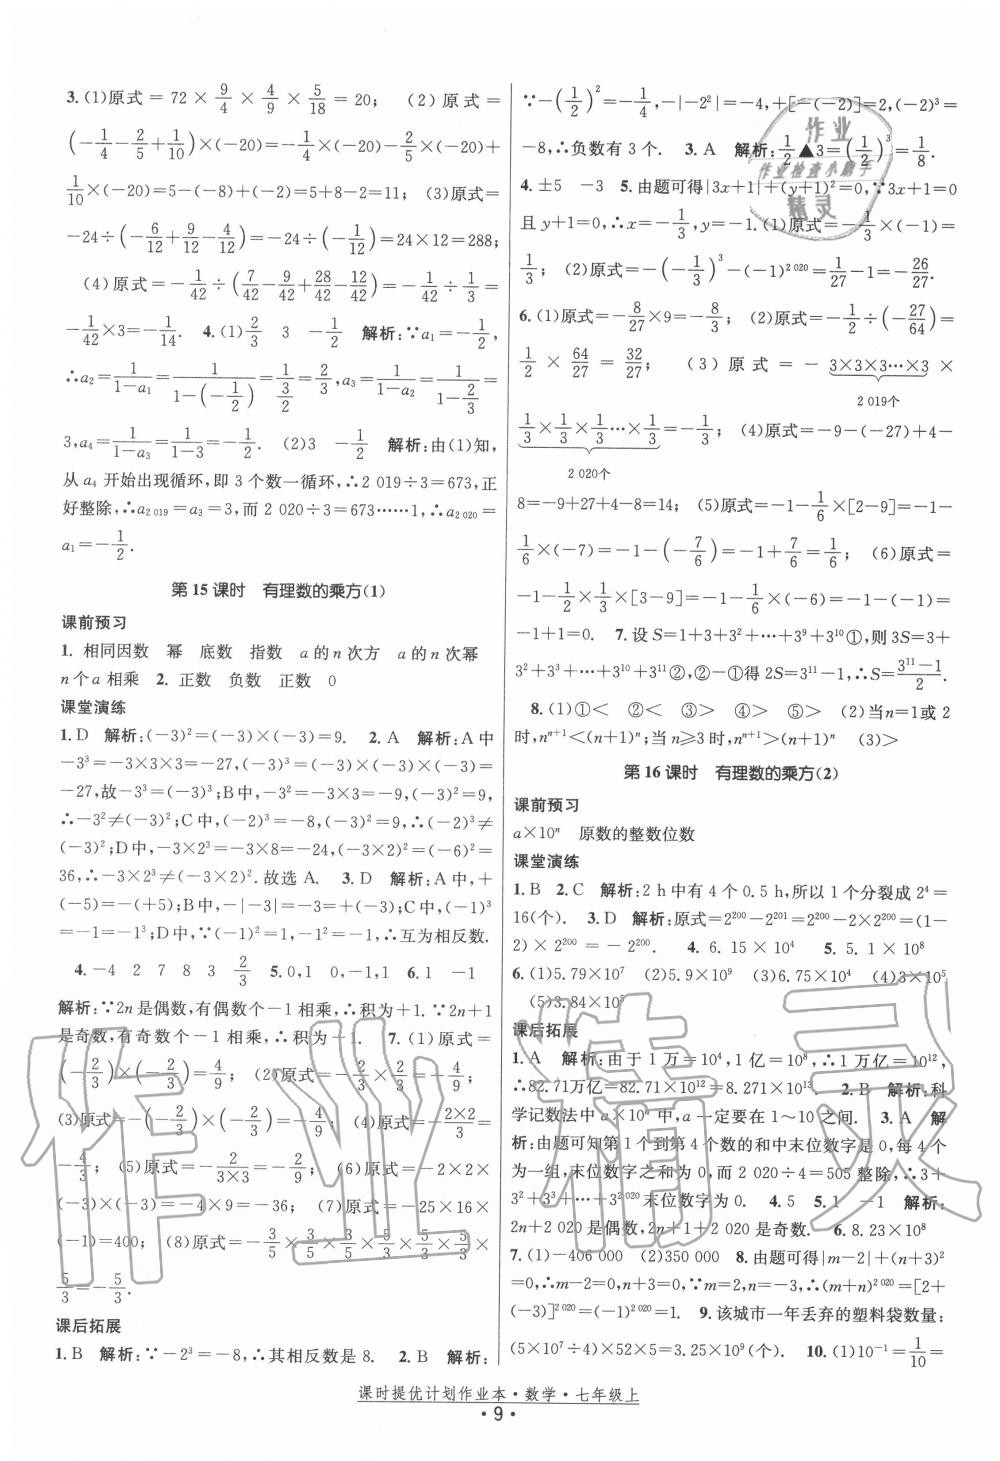 3. (1)原式=72×9/4×4/9×5/18=20; (2)原式=
(-1/4-2/5+1/10)×(-20)=-1/4×(-20)-2/5×(-20)+
1/10×(-20)=5-(-8)+(-2)=5+8-2=11; (3)原式=
-24÷(-6/12+9/12-4/12)=-24÷(-1/12)=24×12=288;
(4)原式=-1/42÷(7/42-9/42+28/42-12/42)=-1/42÷1/3=
-1/42×3=-1/14. 4. (1)2/3 3 -1/2 解析:∵a₁=-1/2,
∴a₂=1/(1-a₁)=1/(1-(-1/2))=1/(3/2)=2/3,a₃=1/(1-a₂)=1/(1-2/3)=
3,a₄=1/(1-a₃)=1/(1-3)=-1/2. (2)3 -1/2 解析:由(1)知,
从 a₄ 开始出现循环,即 3 个数一循环,∴2 019÷3=673,正
好整除,∴a₂₀₁₉=a₃=3,而 2 020÷3=673……1,∴a₂₀₂₀=
a₁=-1/2.
第 15 课时 有理数的乘方(1)
课前预习
1. 相同因数 幂 底数 指数 a 的 n 次方 a 的 n 次幂
n 个 a 相乘 2. 正数 负数 正数 0
课堂演练
1. D 解析:(-3)²=(-3)×(-3)=9. 2. A 解析:A 中
-3³=-3×3×3=-27,(-3)³=(-3)×(-3)×(-3)=
-27,故-3³=(-3)³;B中,-3²=-3×3=-9,(-3)²=9,
∴-3²≠(-3)²;C中,(-2)³=-8,(-3)²=9,∴(-2)³≠
(-3)²;D中,-3×2³=-3×8=-24,(-3×2)²=(-6)²=
36,∴-3×2³≠(-3×2)². 故选 A. 3. D 解析:A中,+
(-5)=-(+5);B中,-|-3|=-3=+(-3);C中,(-1)³
=-1=-1³;D中,∵(-1)²=1,-1²=-1,∴互为相反数.
4. -4 2 7 8 3 2/3 5. 0,1 0,-1,1 6. 1 -1
解析:∵2n是偶数,有偶数个-1相乘,∴积为+1. ∵2n+1
是奇数,有奇数个-1 相乘,∴积为-1. 7. (1)原式=
(-2/3)×(-2/3)=4/9; (2)原式=-2/3×2/3=-4/9;
(3)原式=-(-2/3)×(-2/3)=-4/9; (4)原式=-2×2/3=
-4/3; (5)原式=-2/3×3=-2/9; (6)原式=-2×2×
(-3)×(-3)=-4×9=-36; (7)原式=-25×16×
(-1)=400; (8)原式=-3/5×3/5×3/5×5/3×5/3×5/3×
5/3=-5/3.
课后拓展
1. B 解析:∵-2³=-8,∴其相反数是 8. 2. B 解析:
∵-(1/2)²=-1/4,-|-2²|=-4,+[-(-2)]=2,(-2)³=
-8,∴负数有 3 个. 3. A 解析:1/2▲3=(1/2)³=1/8.
4. ±5 -3 5. 由题可得|3x+1|+(y+1)²=0,∵3x+1=0
且 y+1=0,∴x=-1/3,y=-1. (1)原式=-1/3×(-1)=
1/3; (2)原式=-(-1/3)³-(-1)²⁰²⁰=1/27-1=-26/27.
6. (1)原式=-8/27×9=-8/3; (2)原式=-1/2÷(-27/64)=
1/2×64/27=32/27; (3)原式=-3×3×3×…×3×
2 019个
1/3×1/3×1/3×…×1/3=-1/3; (4)原式=-9-(-27)+4-
2 020个
8=-9+27+4-8=14; (5)原式=-1-1/6×[2-9]=-1-
1/6×(-7)=-1-(-7/6)=-1+7/6=1/6; (6)原式=
-1-1/2×1/3×[3-9]=-1-1/6×(-6)=-1-(-1)=
-1+1=0. 7. 设 S=1+3+3²+…+3⁹+3¹⁰①,则3S=3+
3²+3³+…+3¹⁰+3¹¹②,②-①得 2S=3¹¹-1,∴S=(3¹¹-1)/2.
8. (1)①< ②< ③> ④> ⑤> (2)当n=1或 2
时,nⁿ⁺¹<(n+1)ⁿ;当 n≥3 时,nⁿ⁺¹>(n+1)ⁿ; (3)>
第 16 课时 有理数的乘方(2)
课前预习
a×10ⁿ 原数的整数位数
课堂演练
1. B 2. C 解析:2 h 中有 4 个 0.5 h,所以 1 个分裂成 2⁴=
16(个). 3. D 解析:原式=2²⁰⁰-2²⁰¹=2²⁰⁰-2×2²⁰⁰=(1-
2)×2²⁰⁰=-2²⁰⁰. 4. 6.15×10⁴ 5. 5.1×10⁸
6. (1)5.79×10⁷ (2)5.9×10⁹ (3)6.75×10⁴ (4)3×10⁵
(5)3.84×10⁵
课后拓展
1. A 解析:由于 1 万=10⁴,1 亿=10⁸,∴1 万亿=10¹²,
∴82.71万亿=82.71×10¹²=8.271×10¹³. 2. B 解析:科
学记数法中 a×10ⁿ 中,a 一定要在 1～10 之间. 3. A 解
析:由题可知第 1 个到第 4 个数的和中末位数字是 0,每 4 个
为一组,末位数字之和为 0,而 2 020÷4=505 整除,∴3+
3²+3³+…+3²⁰²⁰末位数字为 0. 4. 5 5. 1 -1 解析:
2n+2 020是偶数,2n+1+2 020是奇数. 6. 8.23×10⁸
7. (1)-406 000 (2)350 000 8. 由题可得|m-2|+(n+3)²
=0,∴m-2=0,n+3=0,∵m=2,n=-3,∴(m+n)²⁰²⁰=[2+
(-3)]²⁰²⁰=(-1)²⁰²⁰=1. 9. 该城市一年丢弃的塑料袋数量:
(5×10⁷÷4)×52×5=3.25×10⁹(个). 10. (1)10⁻¹=1/10=
课时提优计划作业本·数学·七年级上
·9·
作业
作业检查小助手
精灵
作业精灵